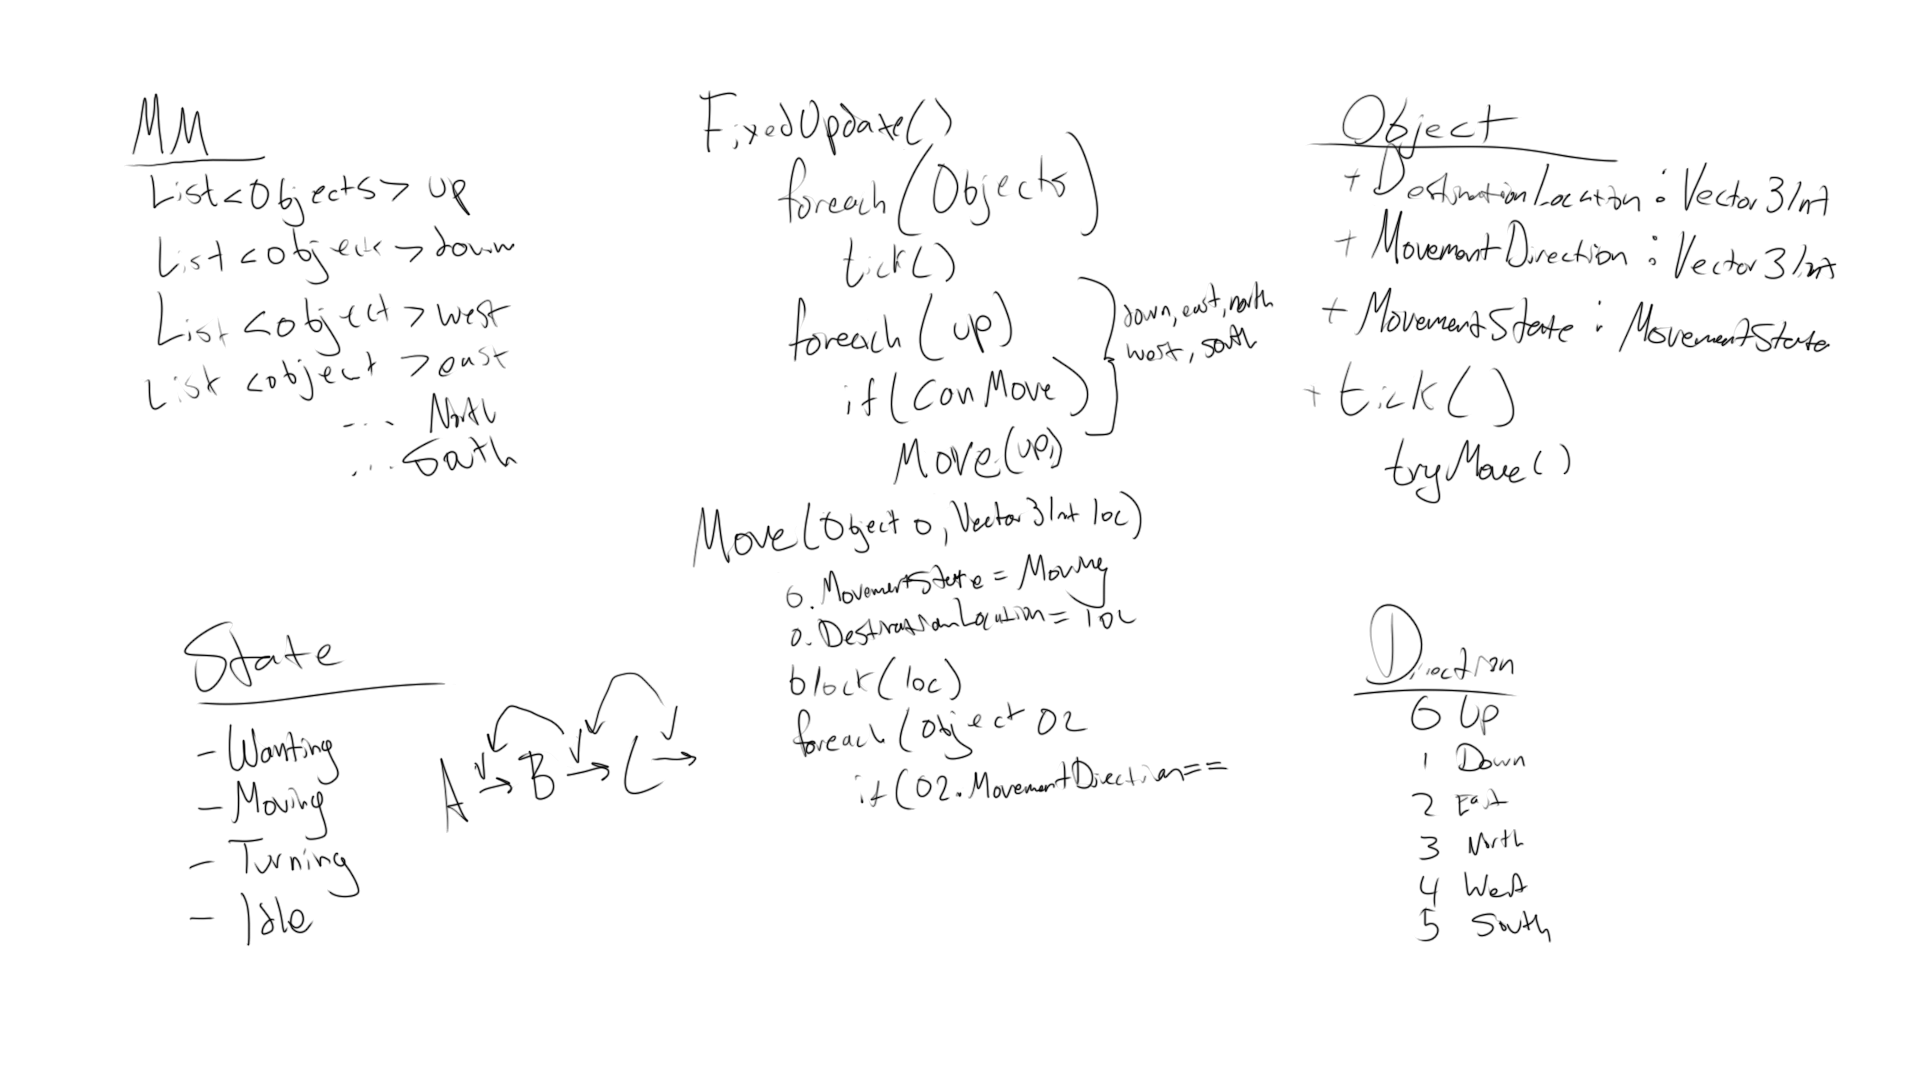 MM
List<Objects> up
List<object>down
List<object>west
List<object>east
... North
... South
FixedUpdate()
foreach(Objects)
tick()
foreach(up)
if(canMove)
Move(up)
down, east, north
west, south
Move(Object o, Vector3Int loc)
o.MovementState = Moving
o.DestinationLocation = loc
block(loc)
foreach(Object O2
if(O2.MovementDirection==
Object
+ DestinationLocation : Vector3Int
+ MovementDirection : Vector3Int
+ MovementState : MovementState
+ tick()
tryMove()
State
- Wanting
- Moving
- Turning
- Idle
A → B → C →
Direction
0 Up
1 Down
2 East
3 North
4 West
5 South